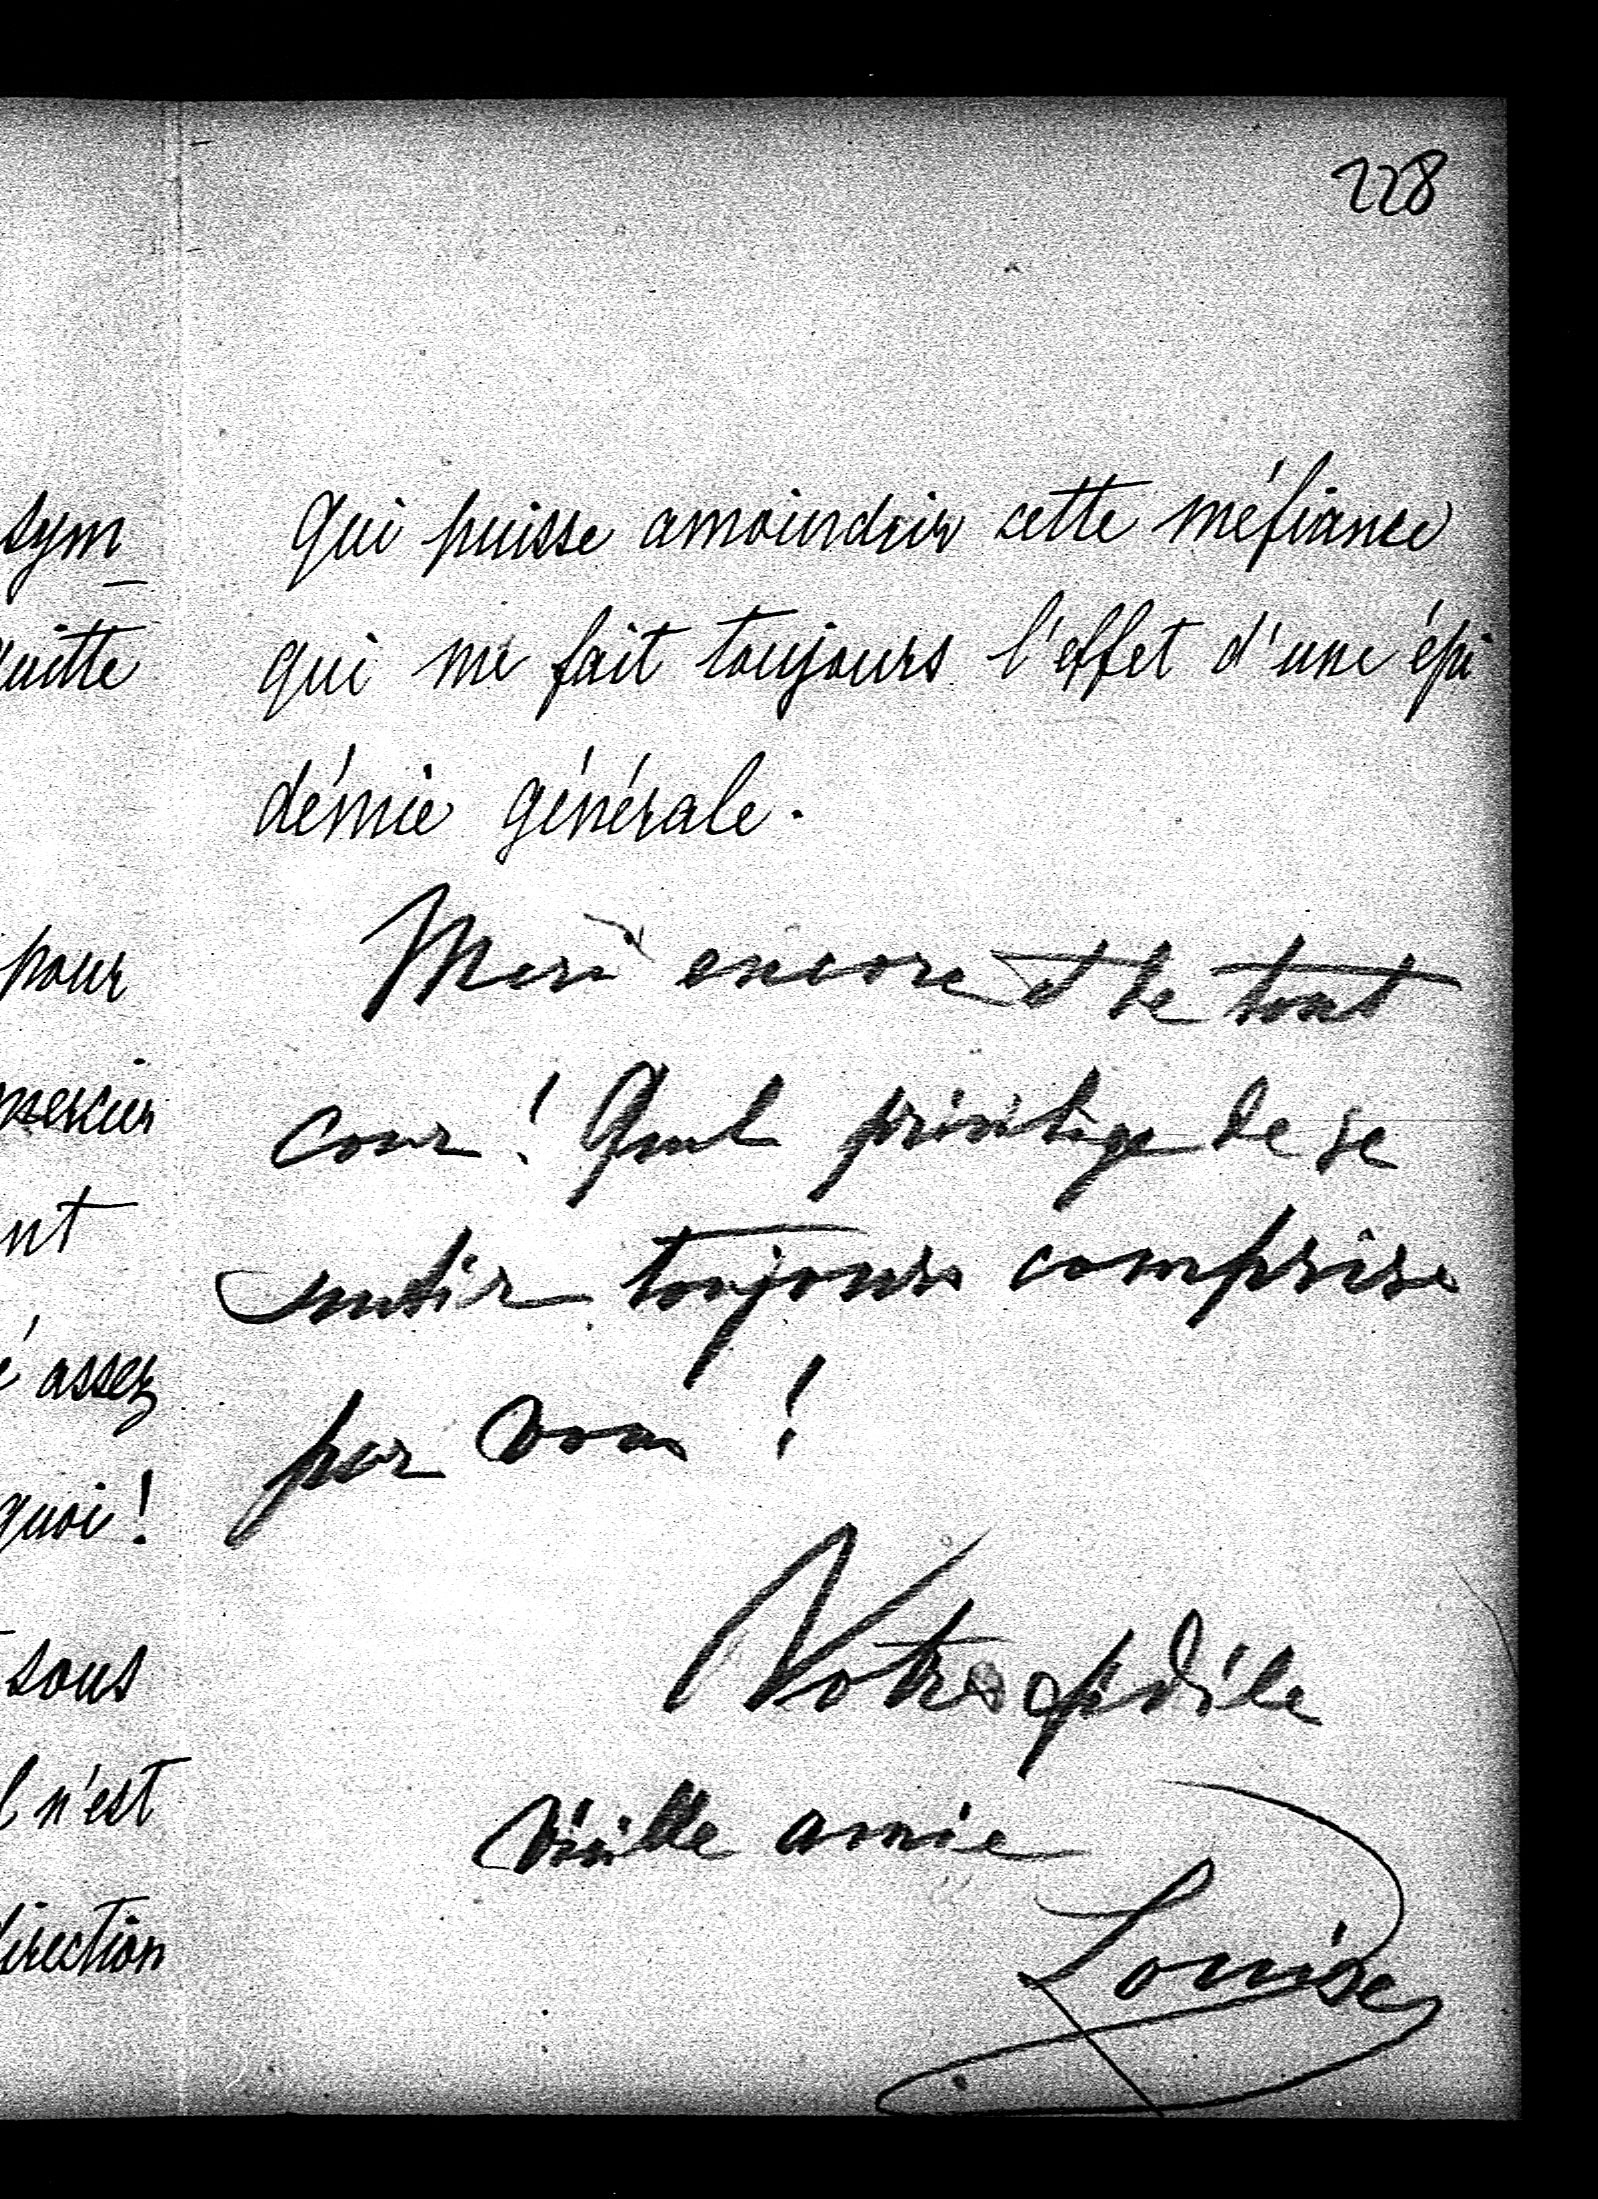 228
sym
uitte
pour
mercier
nt
é assez
quoi!
sous
l n'est
direction
qui puisse amoindrir cette méfiance
qui me fait toujours l'effet d'une épi
démie générale.
Merci encore et de tout
cœur ! Quel privilège de se
sentir toujours comprise
par vous !
Votre fidèle
vieille amie
Louise